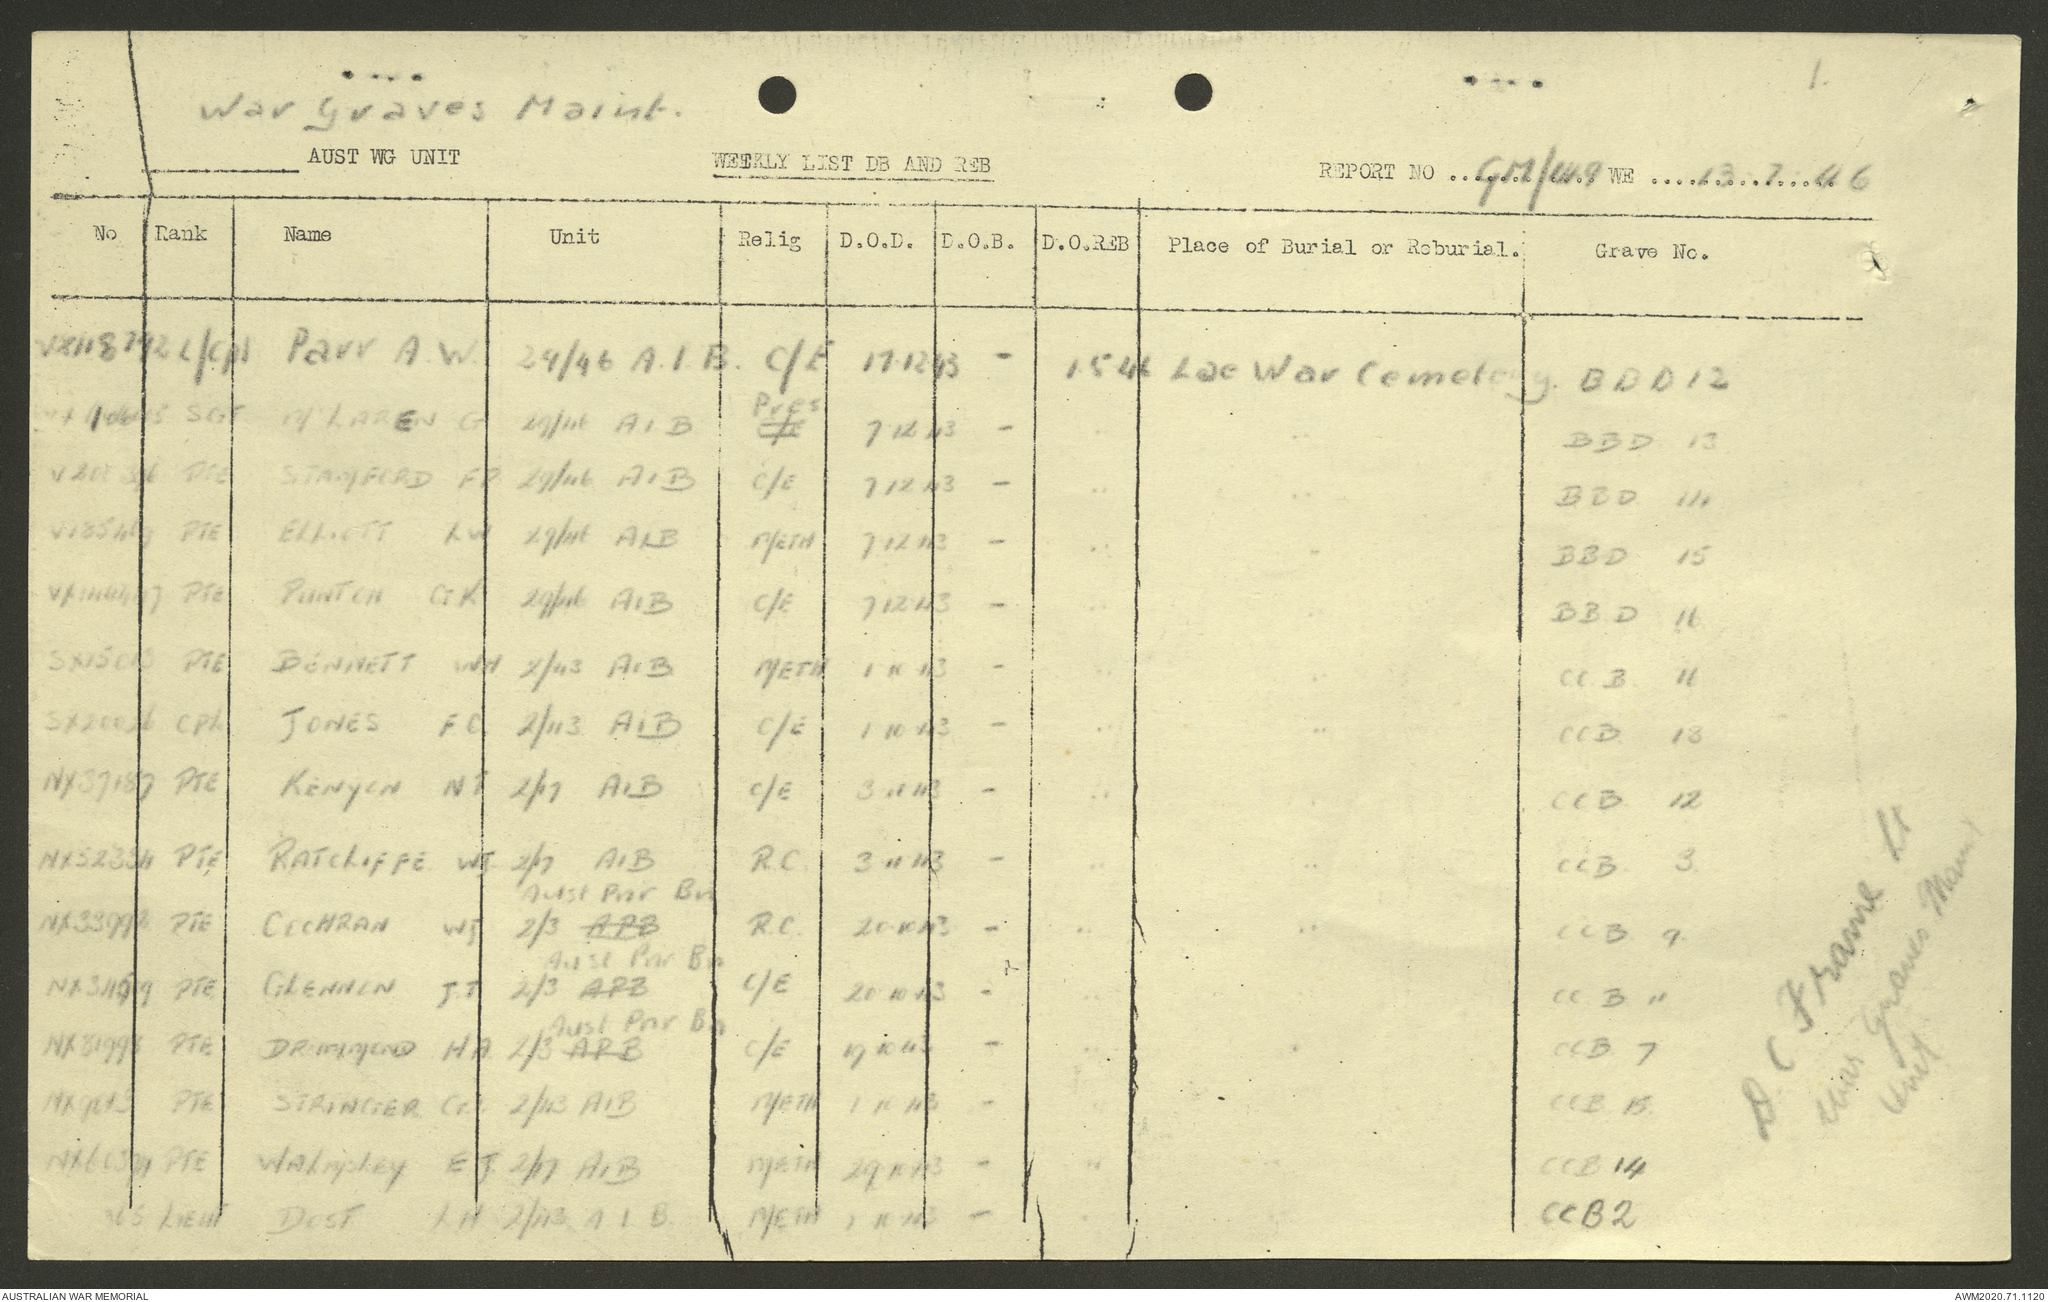 1.
War Graves Maint.
AUST WG UNIT WEEKLY LIST DB AND REB REPORT NO GM/449 WE 13.7.46
No Rank Name Unit Relig D.O.D. D.O.B. D.O.REB Place of Burial or Reburial. Grave No.
VX118792 L/Cpl Parr A.W. 29/46 A.I.B. C/E 17.12.43 - 1.5.46 Lae War Cemetery. BDD 12
Pres
SGT McLAREN G 29/46 AIB C/E 7.12.43 - " " BBD 13
PTE STAMFORD 29/46 AIB C/E 7.12.43 - " " BBD 14
PTE ELLIOTT LW 29/46 AIB METH 7.12.43 - " " BBD 15
PTE PUNTON 29/46 AIB C/E 7.12.43 - " " BBD 16
PTE BENNETT WH 2/43 AIB METH 1.10.43 - " " CCB 11
CPL JONES FC 2/43 AIB C/E 1.10.43 - " " CCB 13
NX37187 PTE KENYON NJ 2/17 AIB C/E 3.11.43 - " " CCB 12
NX52334 PTE RATCLIFFE WJ. 2/17 AIB R.C. 3.11.43 - " " CCB 3.
Aust Pnr Bn
PTE COCHRAN WJ 2/3 APB R.C. 20.10.43 - " " CCB 9.
Aust Pnr Bn
PTE GLENNON J.T 2/3 APB C/E 20.10.43 - " " CCB 11
Aust Pnr Bn
NX81998 PTE DRUMMOND HA 2/3 APB C/E 19.10.43 - " " CCB 7
PTE STRINGER 2/43 AIB METH 1.10.43 - " " CCB 15
PTE WALMSLEY EJ. 2/17 AIB METH 29.10.43 - " " CCB 14
LIEUT DOST LH 2/43 A I B. METH - " CCB 2
D C Frame Lt
War Graves Maint
Unit
AUSTRALIAN WAR MEMORIAL AWM2020.71.1120